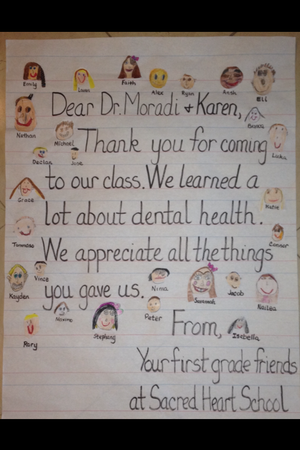 Emily
Liam
Faith
Alex
Ryan
Anth
Eli
Dear Dr. Moradi & Karen,
Nathan
Michael
Thank you for coming
Declan
to our class. We learned a
Grace
Katie
lot about dental health.
Connor
We appreciate all the things
Vince
Kayden
you gave us.
Nina
Savannah
Jacob
Naomi
Stephany
Peter
From,
Isabella
Rory
Your first grade friends
at Sacred Heart School